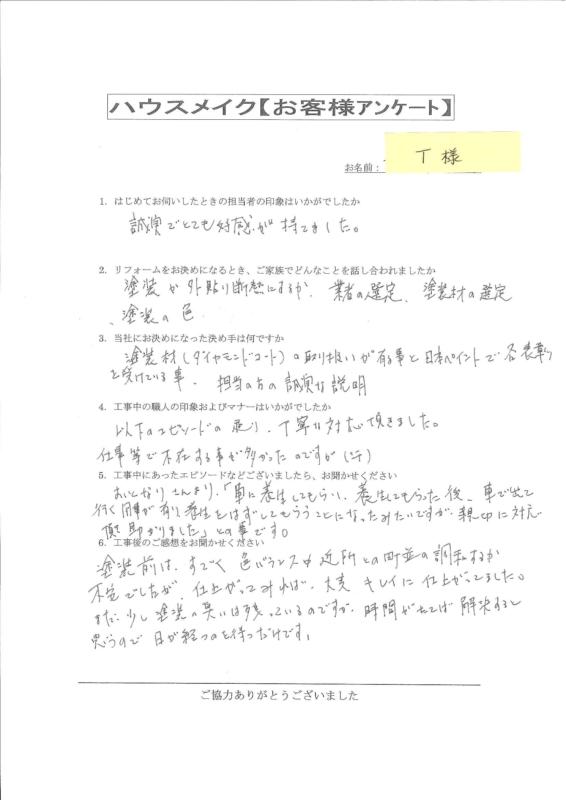 ハウスメイク【お客様アンケート】
T 様
お名前:
1. はじめてお伺いしたときの担当者の印象はいかがでしたか
誠実でとても好感が持てました。
2. リフォームをお決めになるとき、ご家族でどんなことを話し合われましたか
塗装か外貼り断熱にするか、業者の選定、塗装材の選定
、塗装の色
3. 当社にお決めになった決め手は何ですか
塗装材(ダイヤモンドコート)の取り扱いが有る事と日本ペイントで各表彰
を受けている事、担当の方の誠実な説明
4. 工事中の職人の印象およびマナーはいかがでしたか
以下のエピソードの通り、丁寧な対応頂きました。
仕事等で不在する事が多かったのですが(汗)
5. 工事中にあったエピソードなどございましたら、お聞かせください
おとなりさんより、「車に養生してもらい、養生してもらった後、車で出て
行く用事が有り養生をはずしてもらうことになったみたいですが、親切に対応
頂き助かりました」との事です。
6. 工事後のご感想をお聞かせください
塗装前は、すごく色バランスや近所との町並の調和するか
不安でしたが、仕上がってみれば、大変キレイに仕上がってました。
まだ少し塗装の臭いは残っているのですが、時間がたてば解決すると
思うので日が経つのを待つだけです。
ご協力ありがとうございました